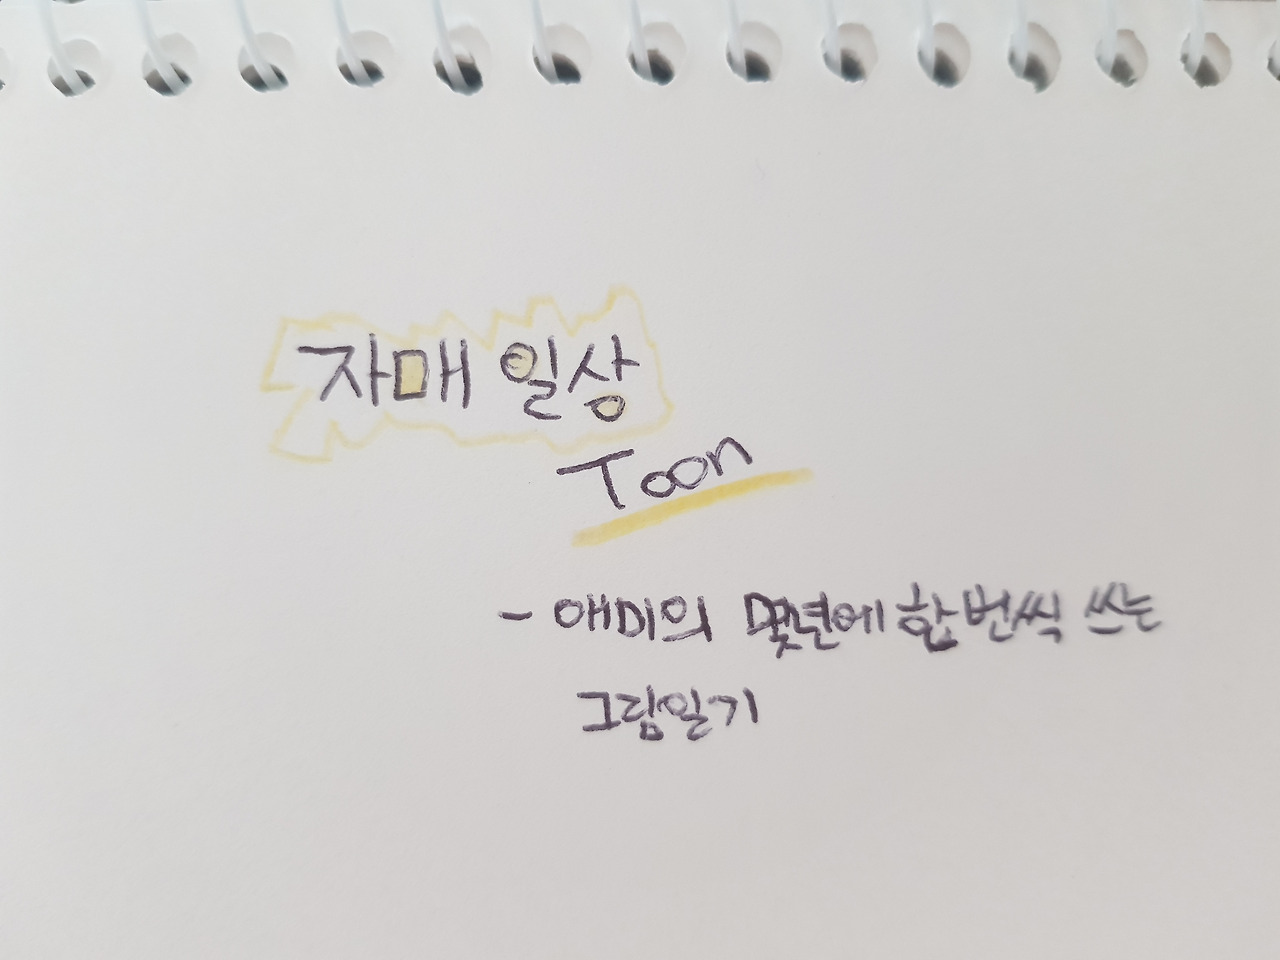 자매 일상
Toon
- 애미의 몇년에 한번씩 쓰는
그림일기